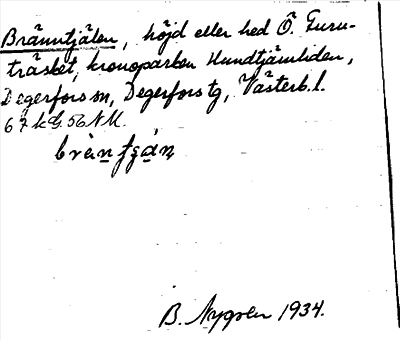 Bränntjälen, höjd eller hed Ö. Guru-
träsket, kronoparken Hundtjärnliden,
Degerfors sn, Degerfors tg, Västerb. l.
67 kG. 56 NM.
B. Nygren 1934.